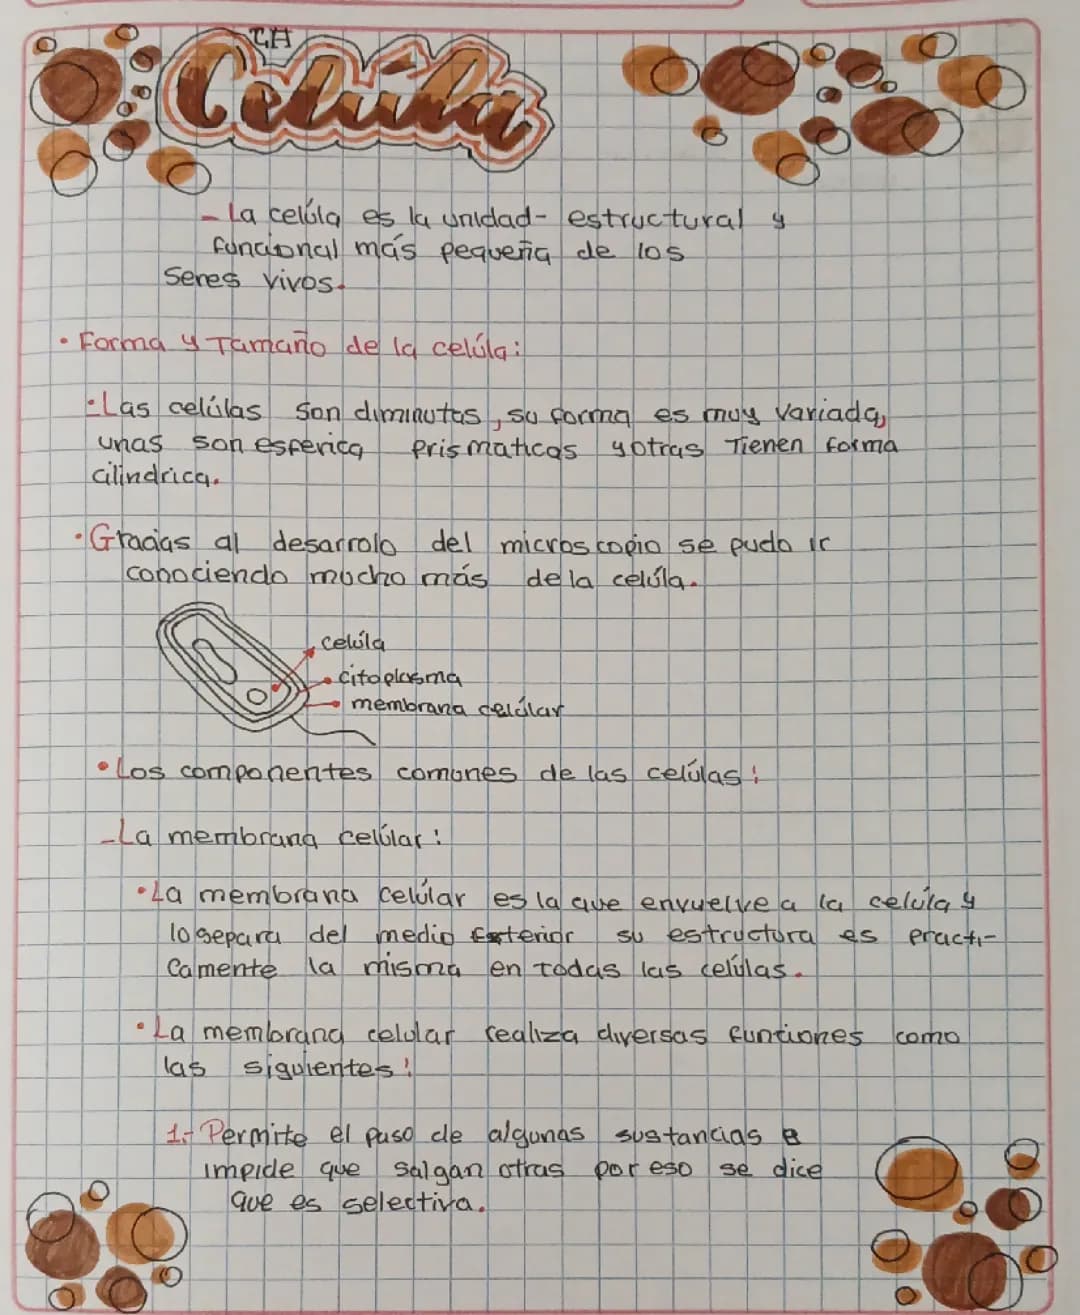 LA
Celúla
- La celúla es la unidad- estructural y
funcional más pequeña de los
Seres vivos.
• Forma y Tamaño de la celúla:
• Las celúlas son diminutas, su forma es muy variada,
unas son esferica prismaticas y otras Tienen forma
cilindrica.
• Gracias al desarrolo del microscopio se pudo ir
conociendo mucho más de la celúla.
celúla
citoplasma
membrana celúlar
• Los componentes comunes de las celúlas:
- La membrana celúlar:
• La membrana celúlar es la que envuelve a la celúla y
lo separa del medio Exterior su estructura es practi-
camente la misma en todas las celúlas.
• La membrana celular realiza diversas funciones como
las siguientes:
1.- Permite el paso de algunas sustancias e
impide que salgan otras por eso se dice
que es selectiva.